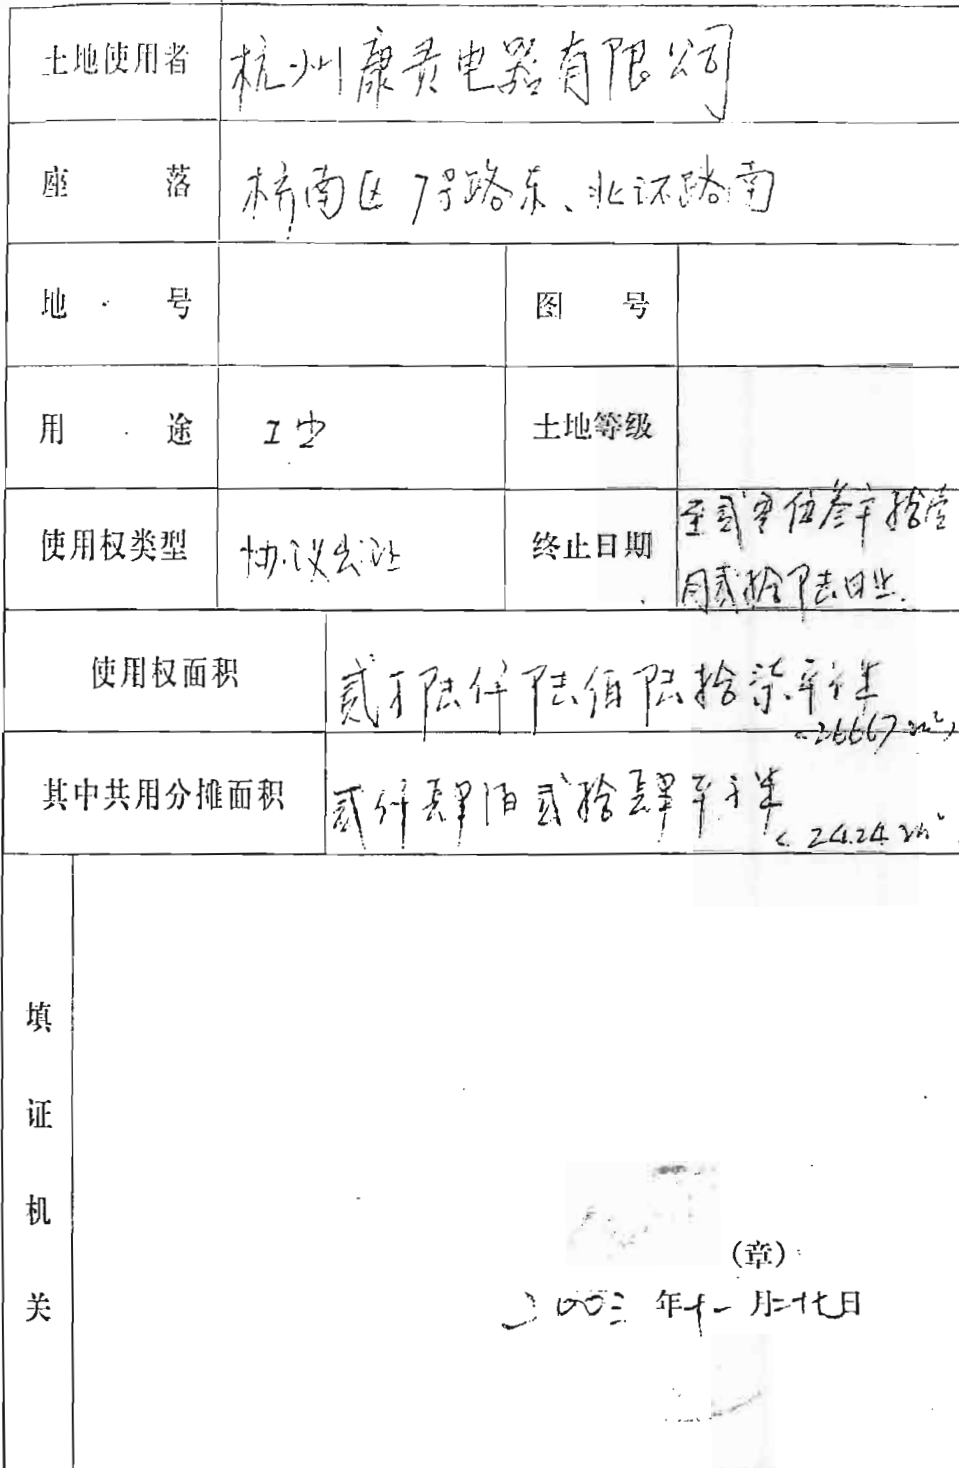 土地使用者 杭州康贵电器有限公司
座 落 桥南区7号路东、北环路南
地 号 图 号
用 途 工业 土地等级
使用权类型 协议出让 终止日期 至贰零伍叁年拾壹
月贰拾陆日止.
使用权面积 贰万陆仟陆佰陆拾柒平方米
(26667m²)
其中共用分摊面积 贰仟肆佰贰拾肆平方米
(2424m²
填证机关
(章)
二00三年十一月二十七日